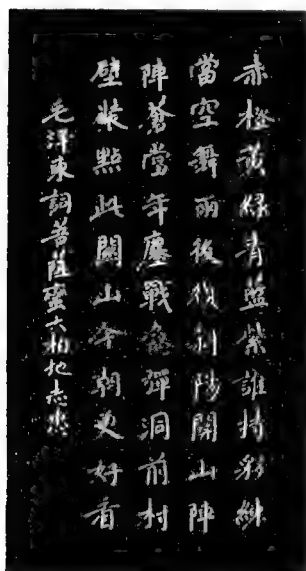 赤橙黃綠青藍紫誰持彩練
當空舞雨後復斜陽關山陣
陣蒼當年鏖戰急彈洞前村
壁裝點此關山今朝更好看
毛澤東詞菩薩蠻大柏地志